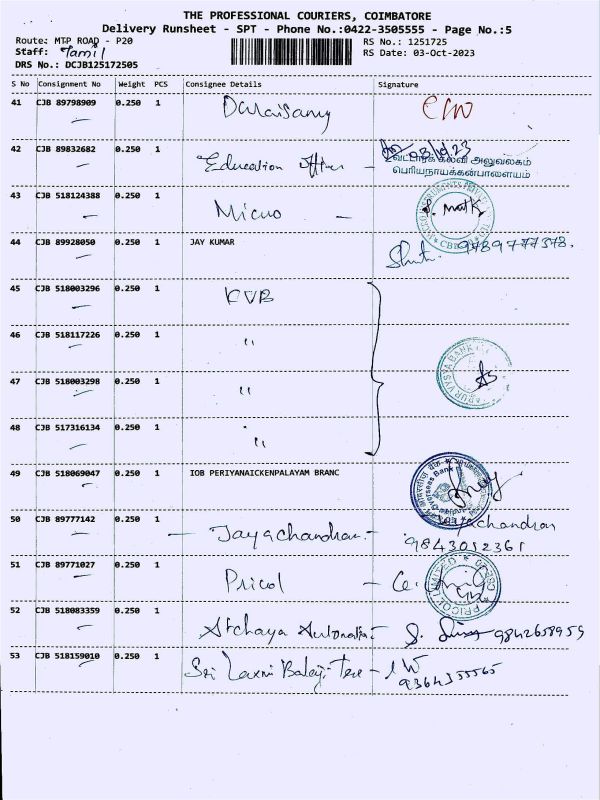 THE PROFESSIONAL COURIERS, COIMBATORE
Delivery Runsheet - SPT - Phone No.:0422-3505555 - Page No.:5
Route: MTP ROAD - P20
RS No.: 1251725
Staff: Tamil
RS Date: 03-Oct-2023
DRS No.: DCJB125172505
S No Consignment No Weight PCS Consignee Details Signature
41 CJB 89798909 0.250 1 Duraisamy
42 CJB 89832682 0.250 1 Education Officer
வட்டாரக் கல்வி அலுவலகம்
பெரியநாயக்கன்பாளையம்
43 CJB 518124388 0.250 1 Micro
44 CJB 89928050 0.250 1 JAY KUMAR 9789777378.
45 CJB 518003296 0.250 1 KVB
46 CJB 518117226 0.250 1 "
47 CJB 518003298 0.250 1 "
48 CJB 517316134 0.250 1 "
49 CJB 518069047 0.250 1 IOB PERIYANAICKENPALAYAM BRANC
50 CJB 89777142 0.250 1 Jayachandran Jayachandran
9843012361
51 CJB 89771027 0.250 1 Pricol
PRICOL LIMITED
52 CJB 518083359 0.250 1 Atchaya Automation 9842658959
53 CJB 518159010 0.250 1 Sri Laxmi Balaji Tex
9364355565